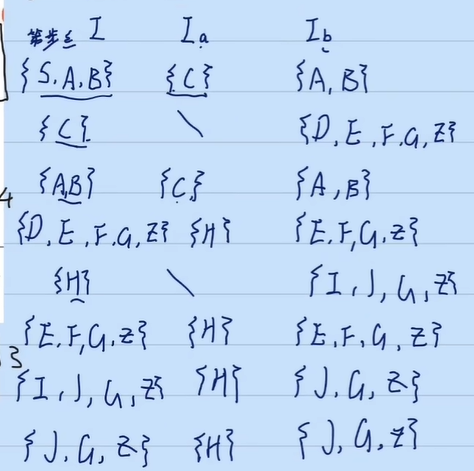 I Ia Ib
{S,A,B} {C} {A,B}
{C} \ {D,E,F,G,Z}
{A,B} {C} {A,B}
{D,E,F,G,Z} {H} {E,F,G,Z}
{H} \ {I,J,G,Z}
{E,F,G,Z} {H} {E,F,G,Z}
3
{I,J,G,Z} {H} {J,G,Z}
{J,G,Z} {H} {J,G,Z}